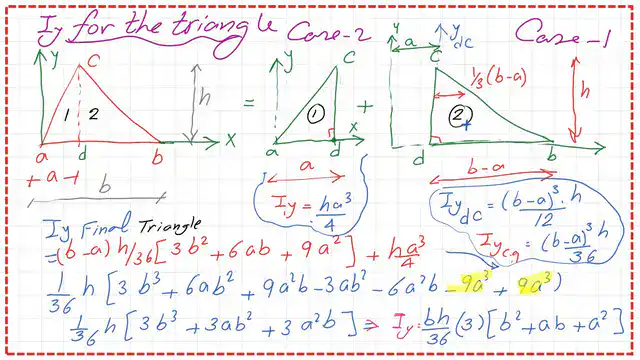 Iy for the triangle Case-2
Case-1
y
C
1 2
h
a d b x
a
b
=
y
C
①
a d x
a
Iy = ha³/4
+
y
a
y dc
C
1/3(b-a)
②
h
d b
b-a
Iy dc = (b-a)³·h/12
Iy c.g = (b-a)³h/36
Iy Final Triangle
=(b-a)h/36[3b²+6ab+9a²]+ha³/4
1/36 h[3b³+6ab²+9a²b-3ab²-6a²b-9a³+9a³)
1/36 h[3b³+3ab²+3a²b] ⇒ Iy=bh/36(3)[b²+ab+a²]